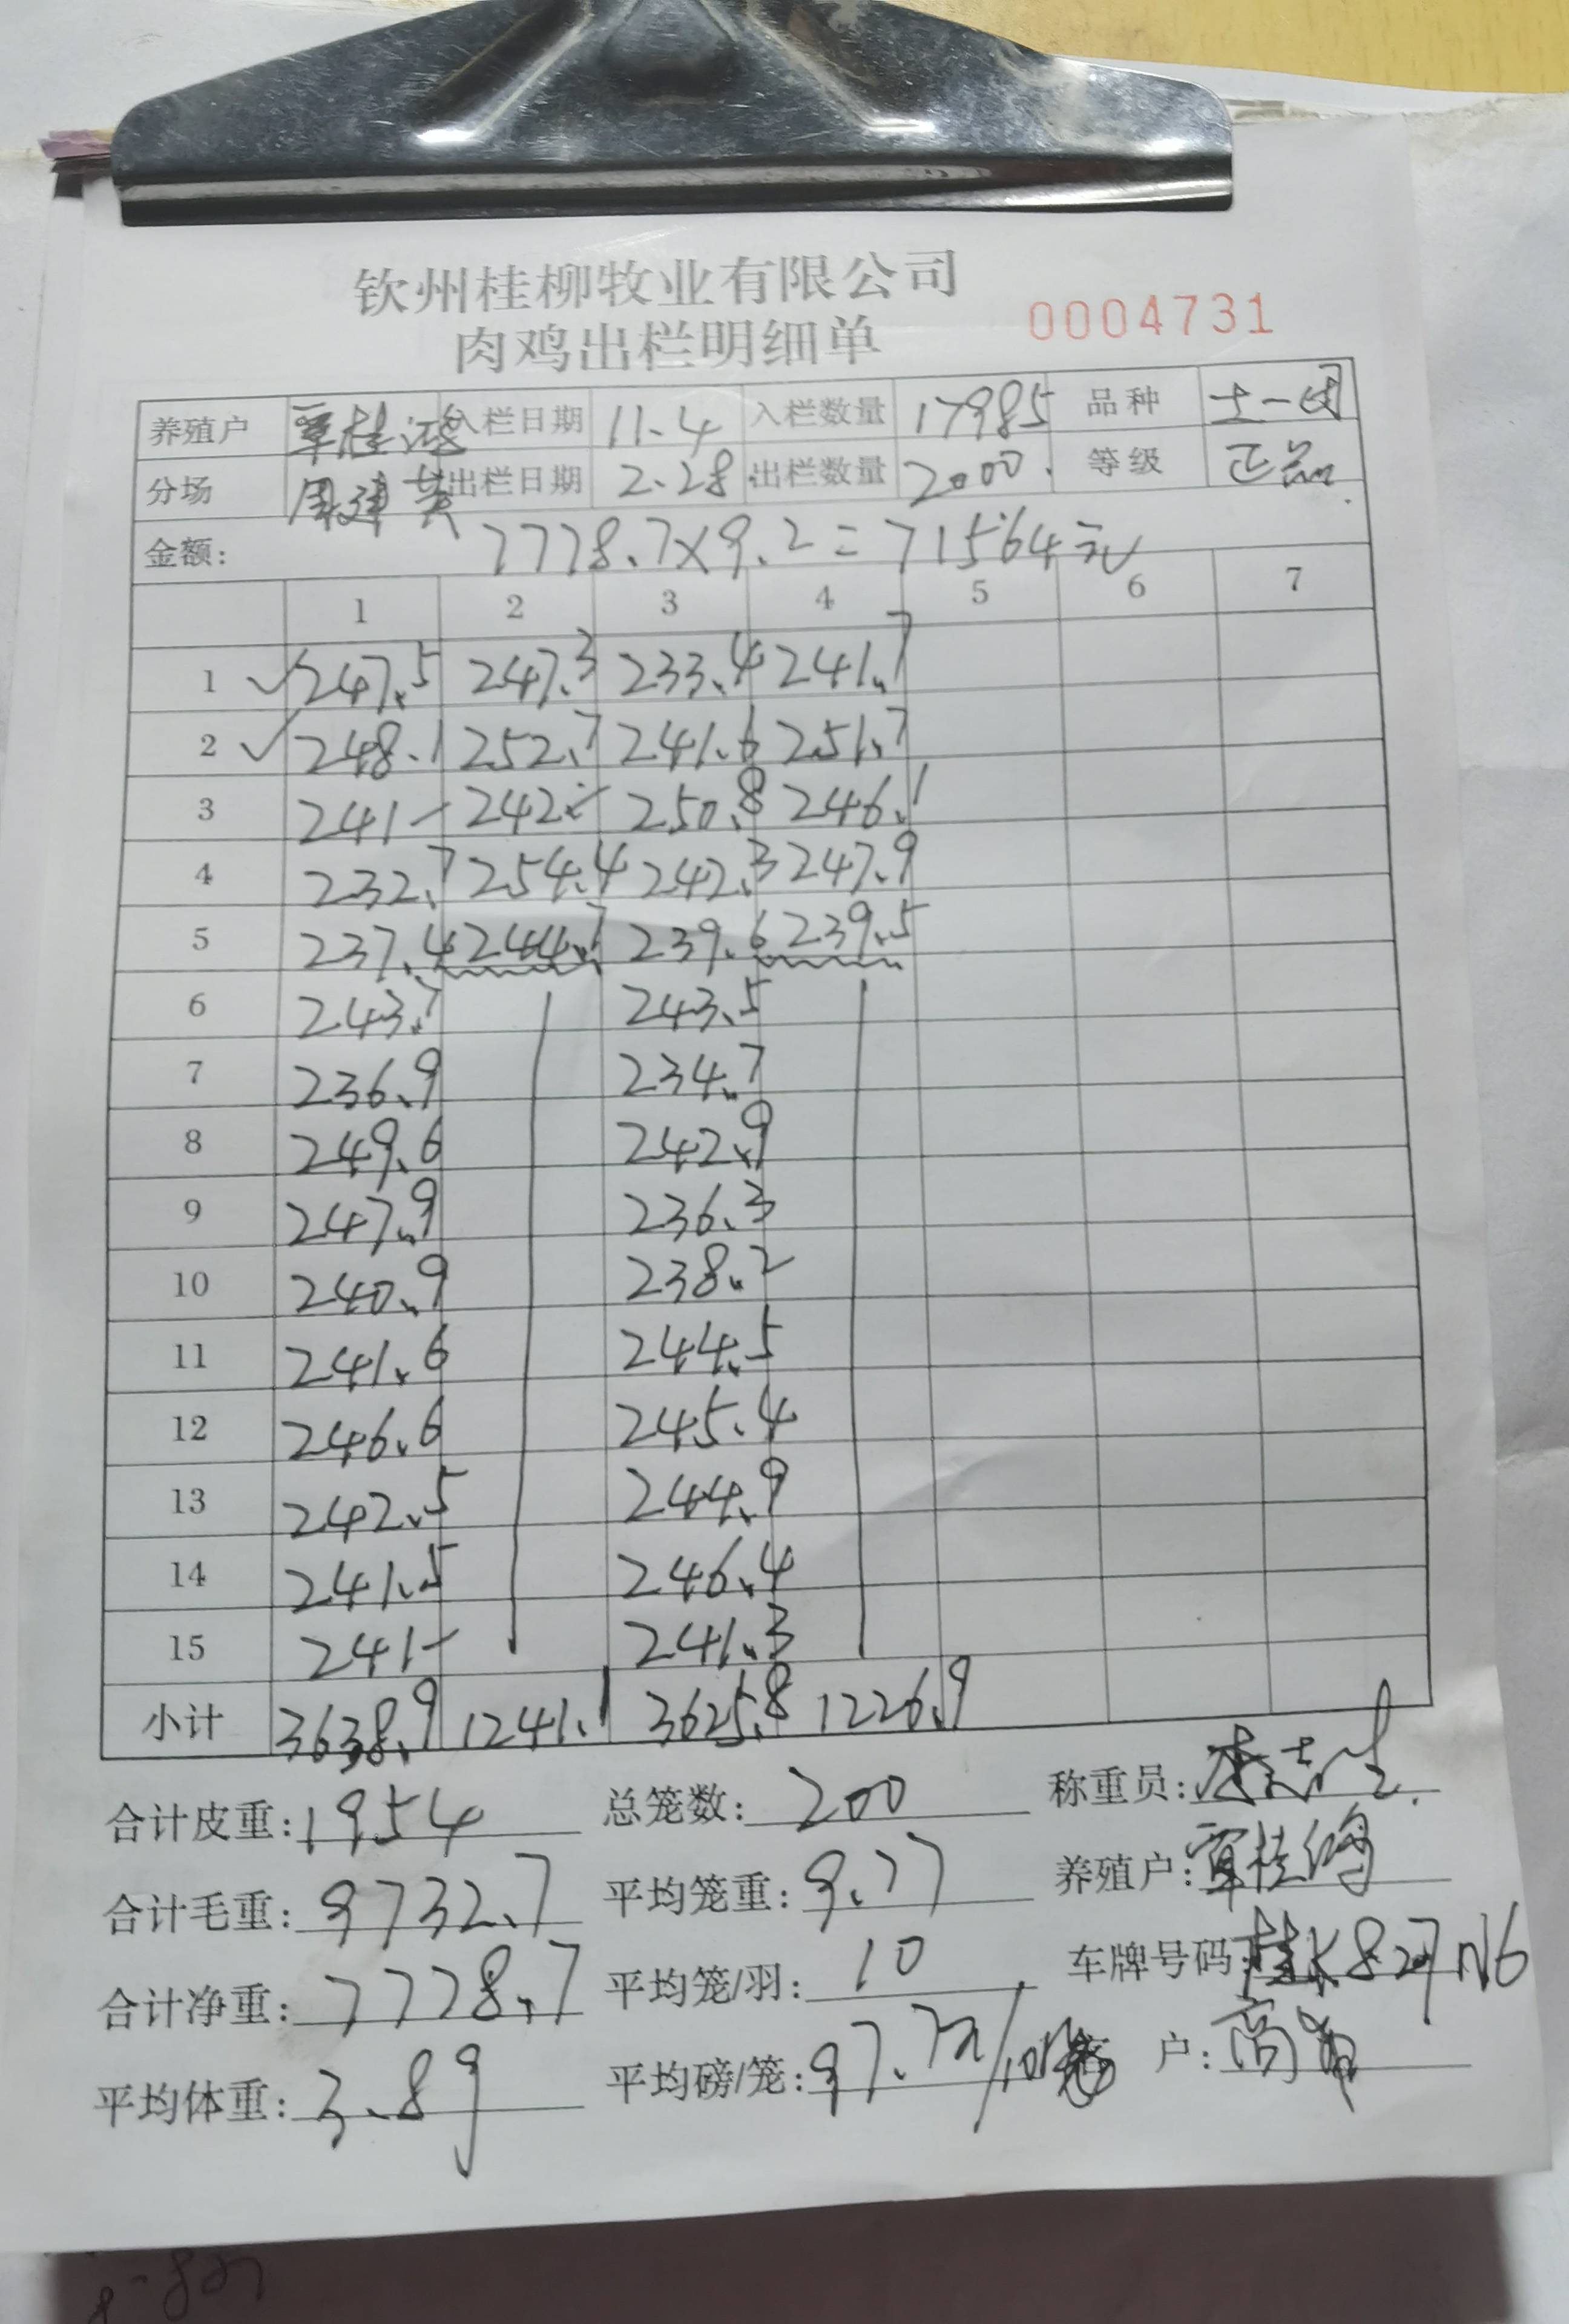 钦州桂柳牧业有限公司
肉鸡出栏明细单 0004731
养殖户 覃桂鸿 入栏日期 11.4 入栏数量 17985 品种 土一
分场 周建英 出栏日期 2.28 出栏数量 2000. 等级 正品
金额: 7778.7×9.2=71564元
1 2 3 4 5 6 7
1 247.5 247.3 233.4 241.7
2 248.1 252.7 241.6 251.7
3 241- 242- 250.8 246.1
4 232.7 254.4 242.3 247.9
5 237.4 244.7 239.6 239.5
6 243.7 243.5
7 236.9 234.7
8 249.6 242.9
9 247.9 236.3
10 240.9 238.2
11 241.6 244.5
12 246.6 245.4
13 242.5 244.9
14 241.5 246.4
15 241- 241.3
小计 3638.9 1241.1 3625.8 1226.9
合计皮重: 1954 总笼数: 200 称重员:
合计毛重: 9732.7 平均笼重: 9.77 养殖户: 覃桂鸿
合计净重: 7778.7 平均笼/羽: 10 车牌号码: 桂K827N6
平均体重: 3.89 平均磅/笼: 97.7 户: